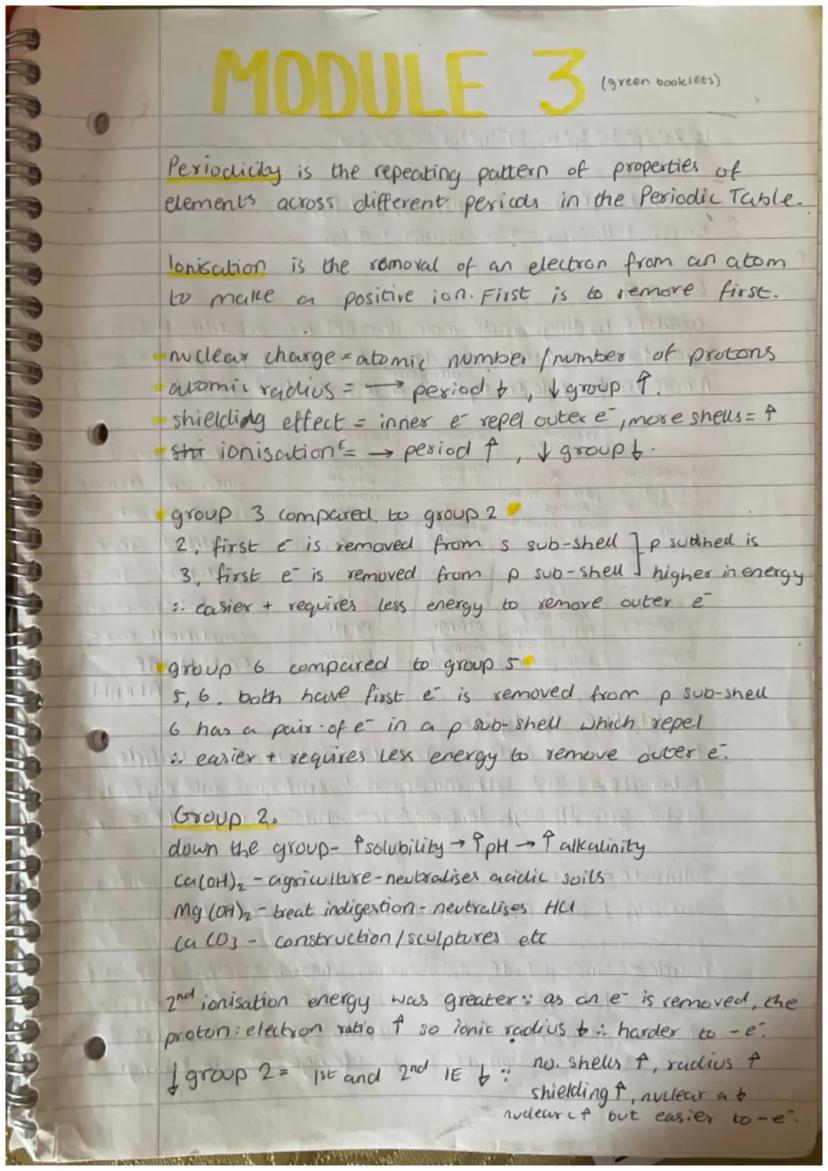 MODULE 3 (green booklets)
Periodicity is the repeating pattern of properties of
elements across different periods in the Periodic Table.
Ionisation is the removal of an electron from an atom
to make a positive ion. First is to remove first.
- nuclear charge = atomic number / number of protons
- atomic radius = → period ↓, ↓ group ↑.
- shielding effect = inner e⁻ repel outer e⁻, more shells = ↑
- ionisation ᴱ = → period ↑, ↓ group ↓.
• group 3 compared to group 2 •
2, first e⁻ is removed from s sub-shell ] p subshell is
3, first e⁻ is removed from p sub-shell ] higher in energy
∴ easier + requires less energy to remove outer e⁻
• group 6 compared to group 5 •
5, 6, both have first e⁻ is removed from p sub-shell
6 has a pair of e⁻ in a p sub-shell which repel
∴ easier + requires less energy to remove outer e⁻.
Group 2.
down the group - ↑ solubility → ↑ pH → ↑ alkalinity
Ca(OH)₂ - agriculture - neutralises acidic soils
Mg(OH)₂ - treat indigestion - neutralises HCl
CaCO₃ - construction / sculptures etc
2nd ionisation energy was greater ∵ as an e⁻ is removed, the
proton : electron ratio ↑ so ionic radius ↓ ∴ harder to -e⁻.
↓ group 2 = 1st and 2nd IE ↓ ∵ no. shells ↑, radius ↑
shielding ↑, nuclear a ↓
nuclear c ↑ but easier to -e⁻.